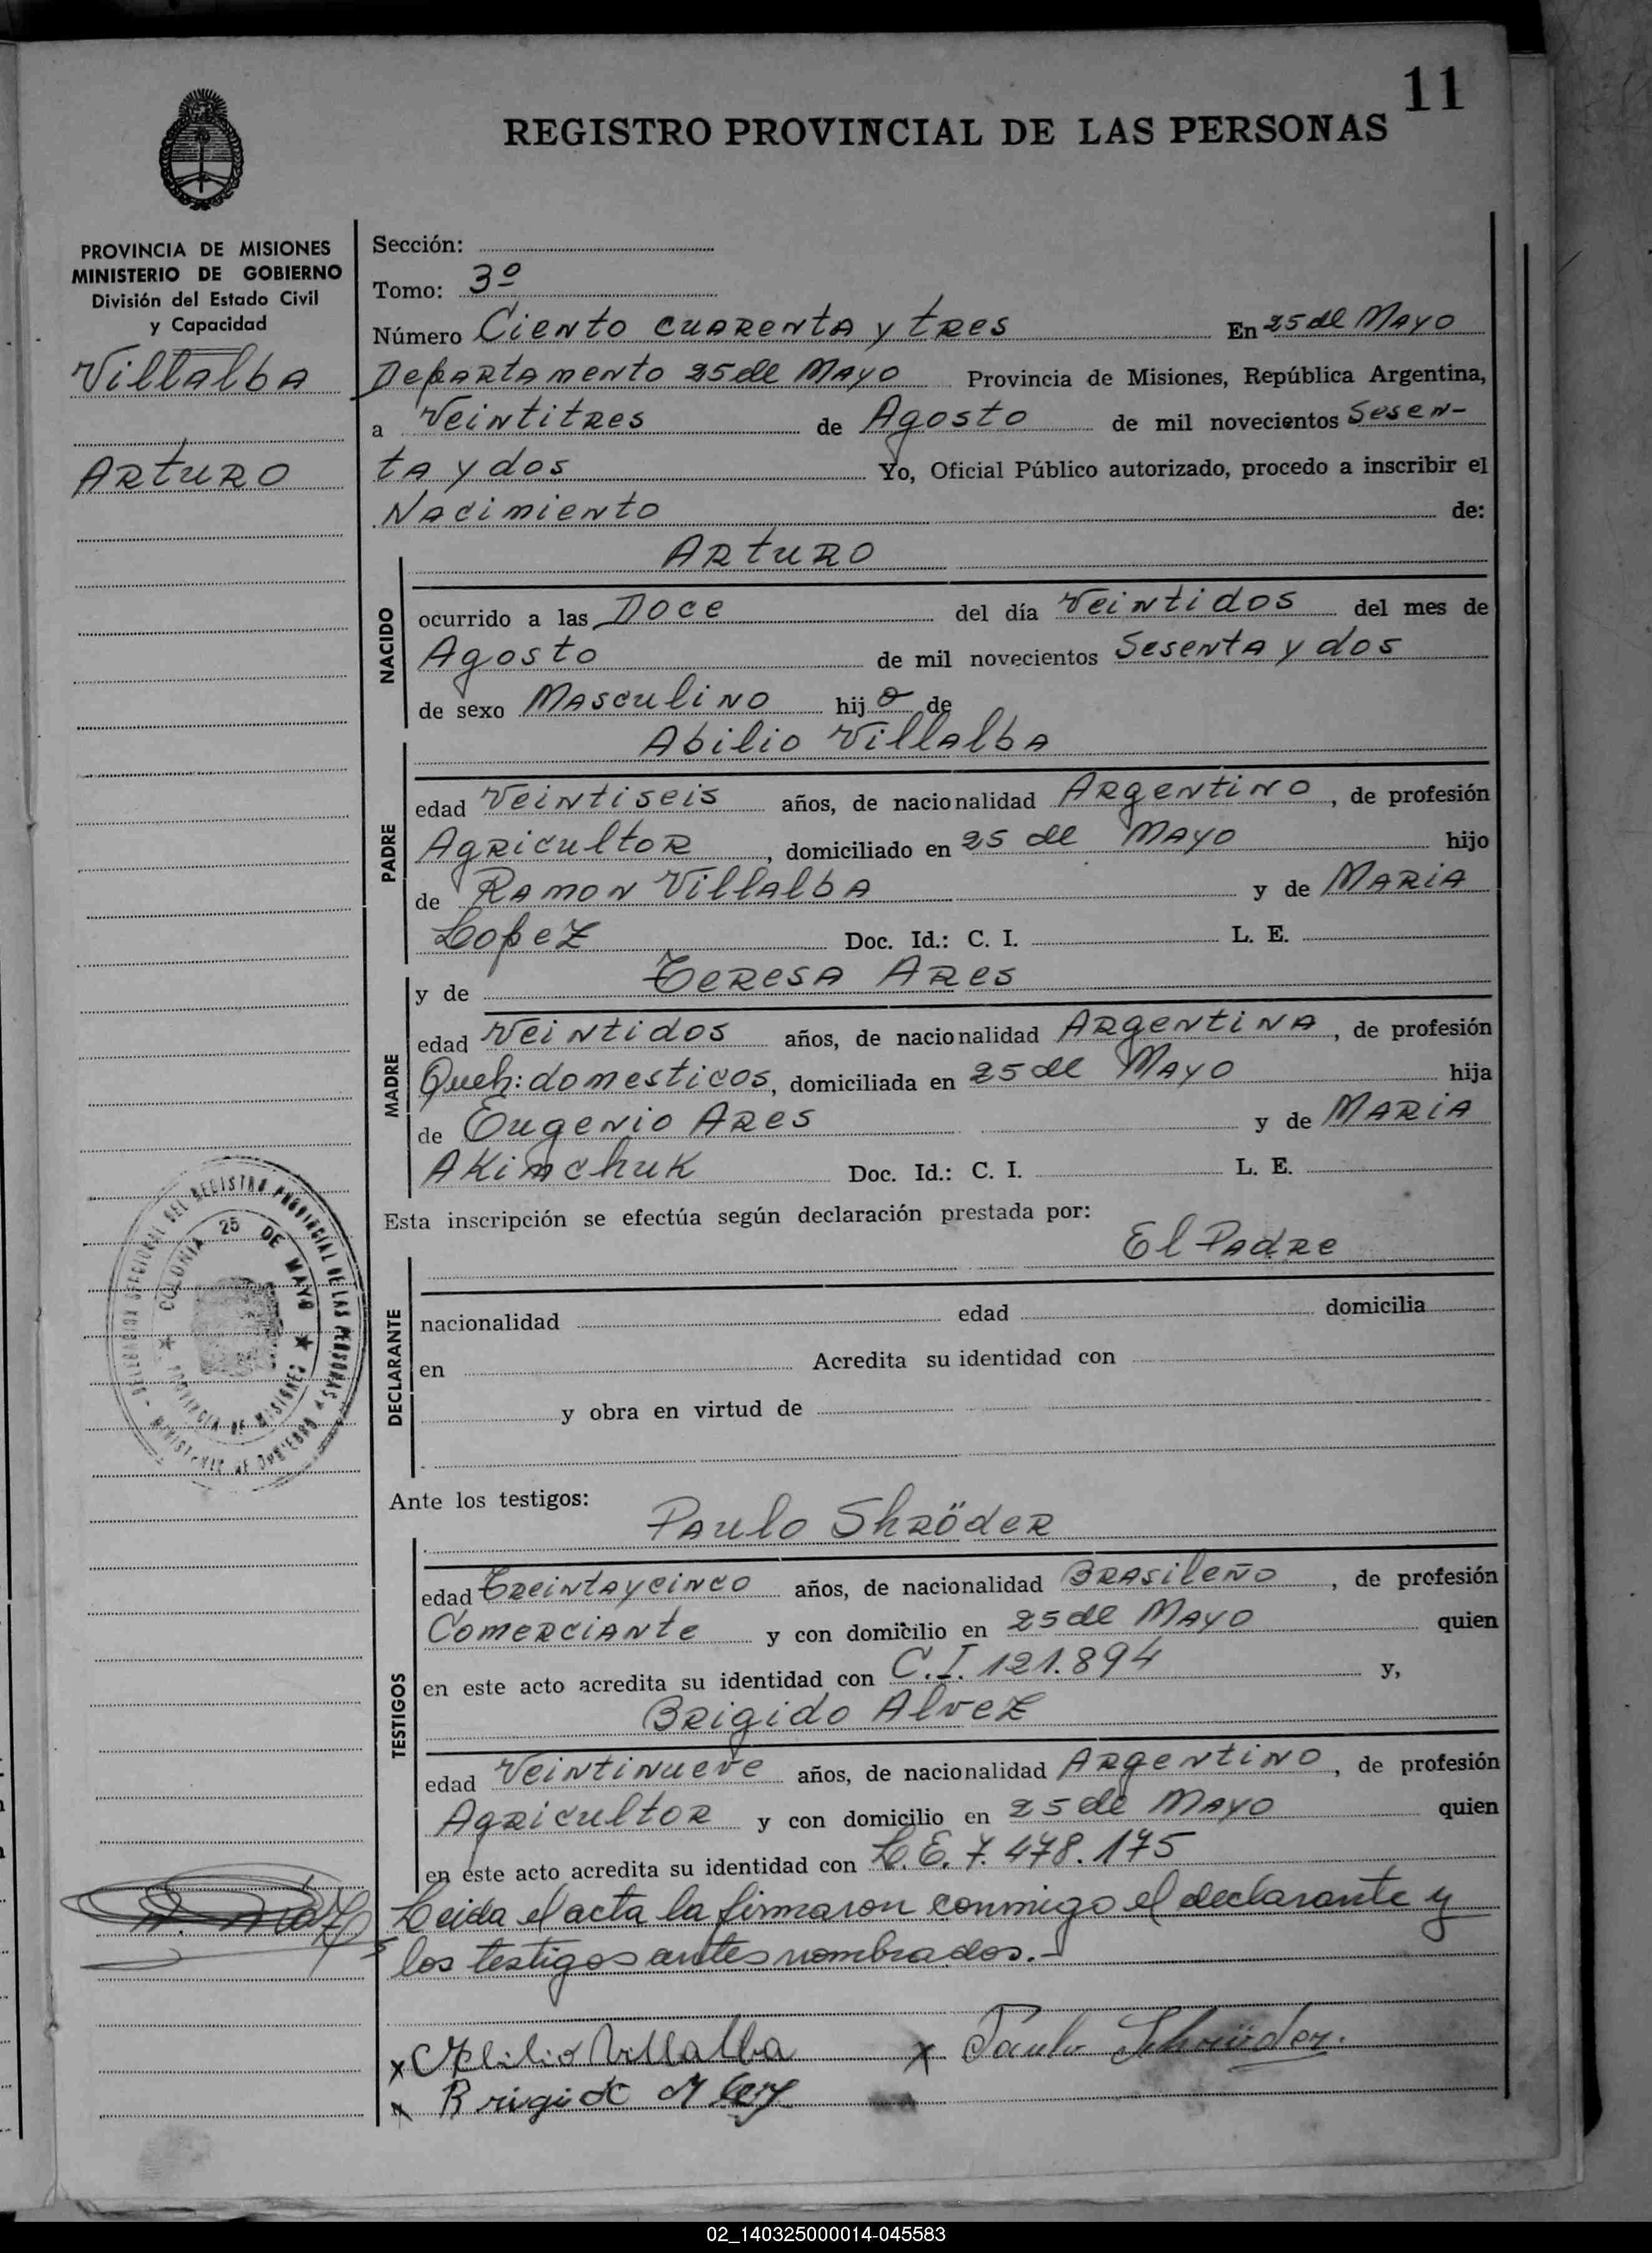 11
REGISTRO PROVINCIAL DE LAS PERSONAS
PROVINCIA DE MISIONES
MINISTERIO DE GOBIERNO
División del Estado Civil
y Capacidad
Villalba
Arturo
Sección:
Tomo: 3º
Número Ciento cuarenta y tres En 25 de Mayo
Departamento 25 de Mayo Provincia de Misiones, República Argentina,
a Veintitres de Agosto de mil novecientos Sesen-
ta y dos Yo, Oficial Público autorizado, procedo a inscribir el
Nacimiento de:
Arturo
NACIDO
ocurrido a las Doce del día Veintidos del mes de
Agosto de mil novecientos Sesenta y dos
de sexo Masculino hijo de
Abilio Villalba
PADRE
edad Veintiseis años, de nacionalidad Argentino, de profesión
Agricultor, domiciliado en 25 de Mayo hijo
de Ramon Villalba y de Maria
Lopez Doc. Id.: C. I. L. E.
y de Teresa Ares
MADRE
edad Veintidos años, de nacionalidad Argentina, de profesión
Queh: domesticos, domiciliada en 25 de Mayo hija
de Eugenio Ares y de Maria
Akimchuk Doc. Id.: C. I. L. E.
Esta inscripción se efectúa según declaración prestada por:
El Padre
DECLARANTE
nacionalidad edad domicilia
en Acredita su identidad con
y obra en virtud de
DELEGACION SECCIONAL DEL REGISTRO PROVINCIAL DE LAS PERSONAS
MINISTERIO DE GOBIERNO
COLONIA 25 DE MAYO
PROVINCIA DE MISIONES
Ante los testigos:
Paulo Shröder
TESTIGOS
edad Treinta y cinco años, de nacionalidad Brasileño, de profesión
Comerciante y con domicilio en 25 de Mayo quien
en este acto acredita su identidad con C.I. 121.894 y,
Brigido Alvez
edad Veintinueve años, de nacionalidad Argentino, de profesión
Agricultor y con domicilio en 25 de Mayo quien
en este acto acredita su identidad con L.E. 7.478.175
Leida el acta la firmaron conmigo el declarante y
los testigos antes nombrados.-
x Abilio Villalba x Paulo Schröder.
x Brigido Alvez
02_140325000014-045583